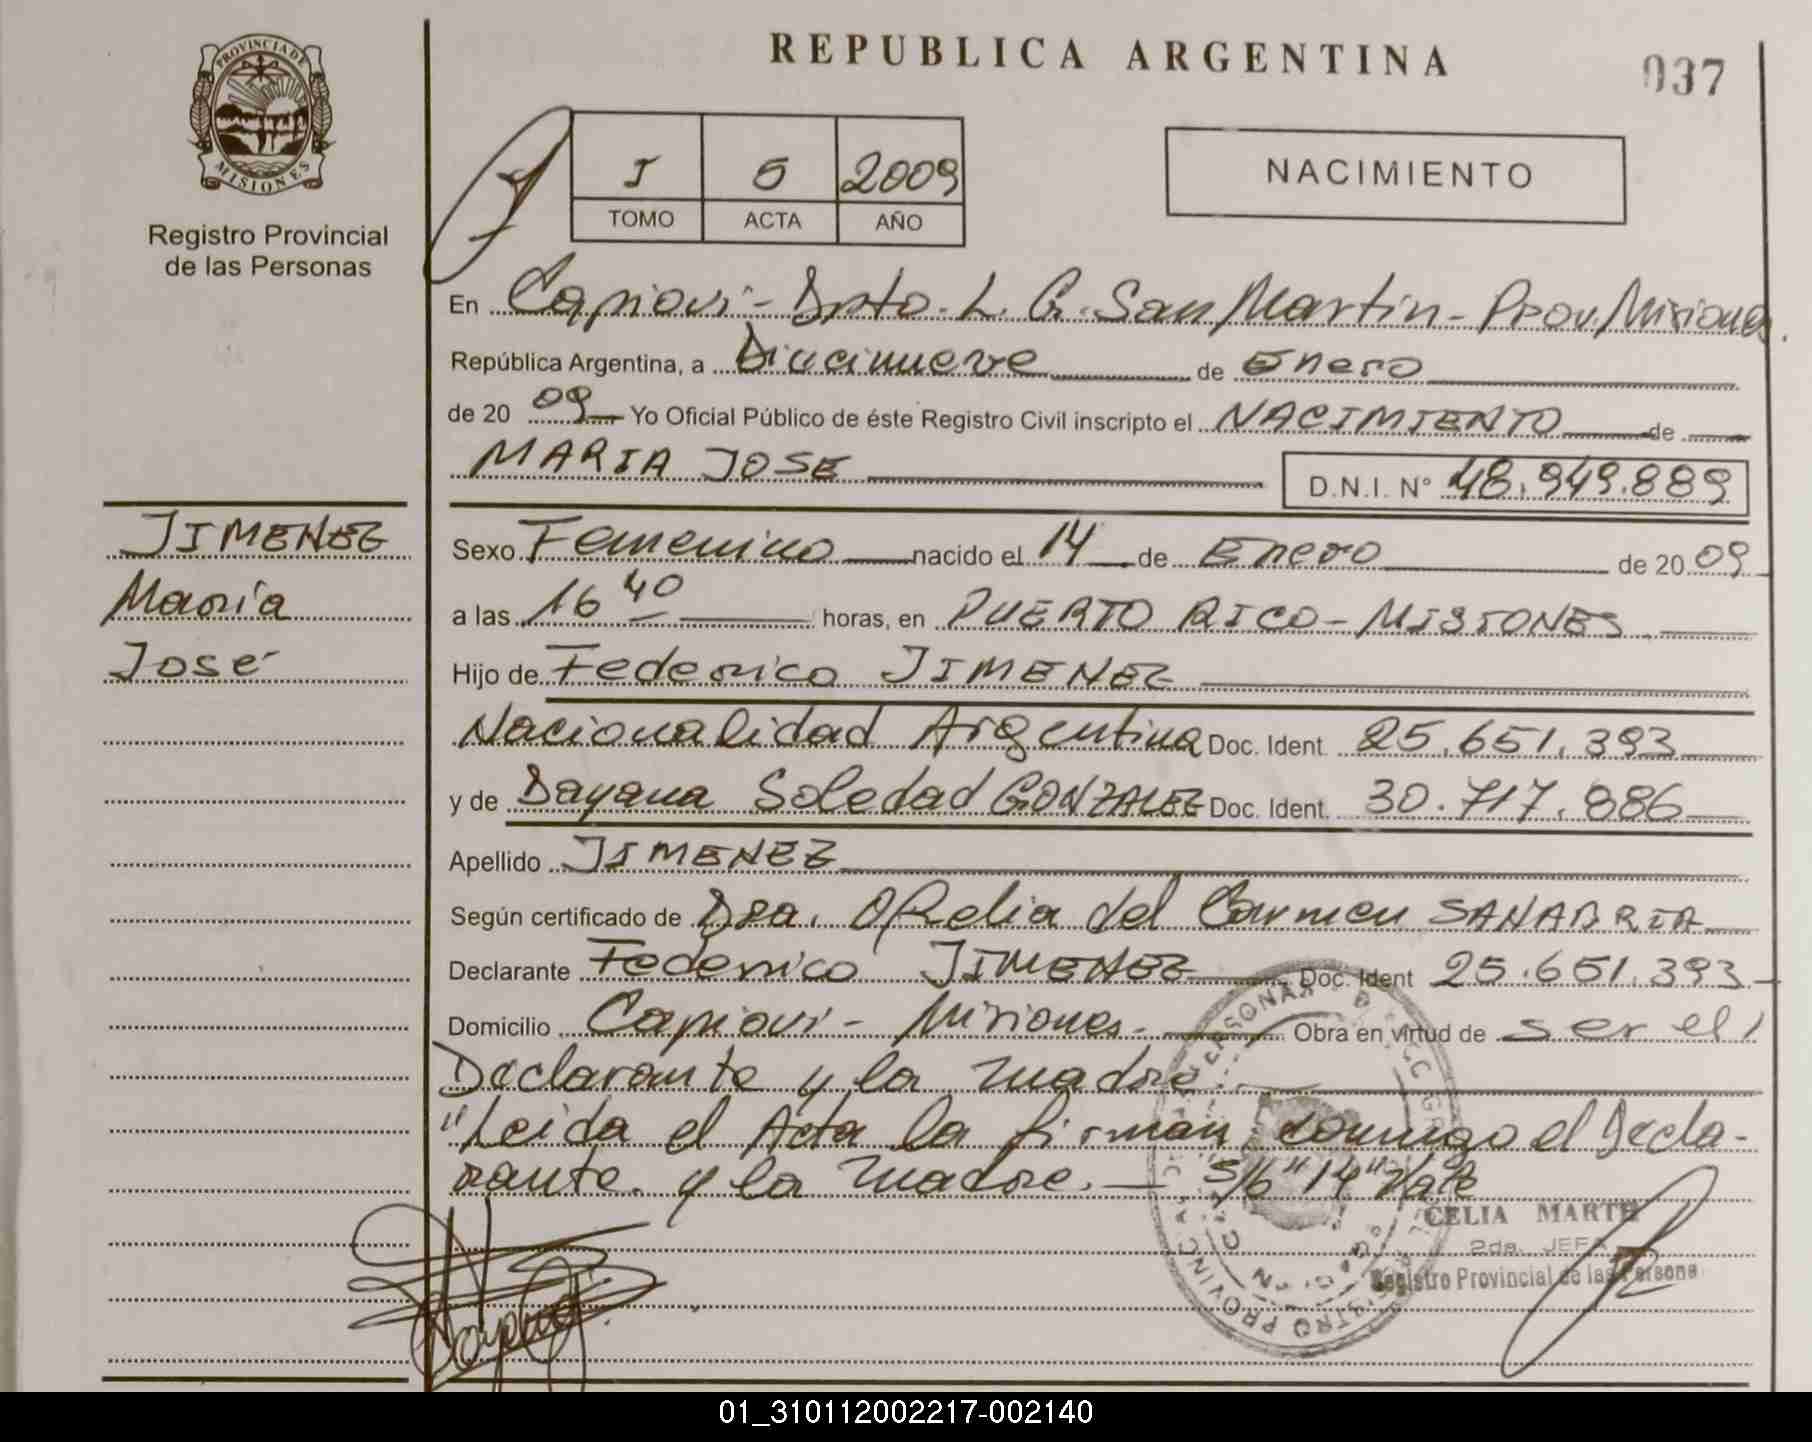 REPUBLICA ARGENTINA
037
PROVINCIA DE
MISIONES
Registro Provincial
de las Personas
I 5 2009
TOMO ACTA AÑO
NACIMIENTO
En Capiovi - Dpto. L. G. San Martin - Prov. Misiones.
República Argentina, a Diecinueve de Enero
de 20 09 Yo Oficial Público de éste Registro Civil inscripto el NACIMIENTO de
MARIA JOSE D.N.I. N° 48.949.889
JIMENEZ
María
José
Sexo Femenino nacido el 14 de Enero de 20 09
a las 16 40 horas, en PUERTO RICO - MISIONES
Hijo de Federico JIMENEZ
Nacionalidad Argentina Doc. Ident. 25.651.393
y de Dayana Soledad GONZALEZ Doc. Ident. 30.717.886
Apellido JIMENEZ
Según certificado de Dra. Ofelia del Carmen SANABRIA
Declarante Federico JIMENEZ Doc. Ident 25.651.393
Domicilio Capiovi - Misiones. Obra en virtud de ser el
Declarante y la madre.
"Leida el Acta la firman conmigo el Decla-
rante. y la madre. — S/b "14" Vale
CELIA MARTH
2da. JEFA
Registro Provincial de las Persona
01_310112002217-002140